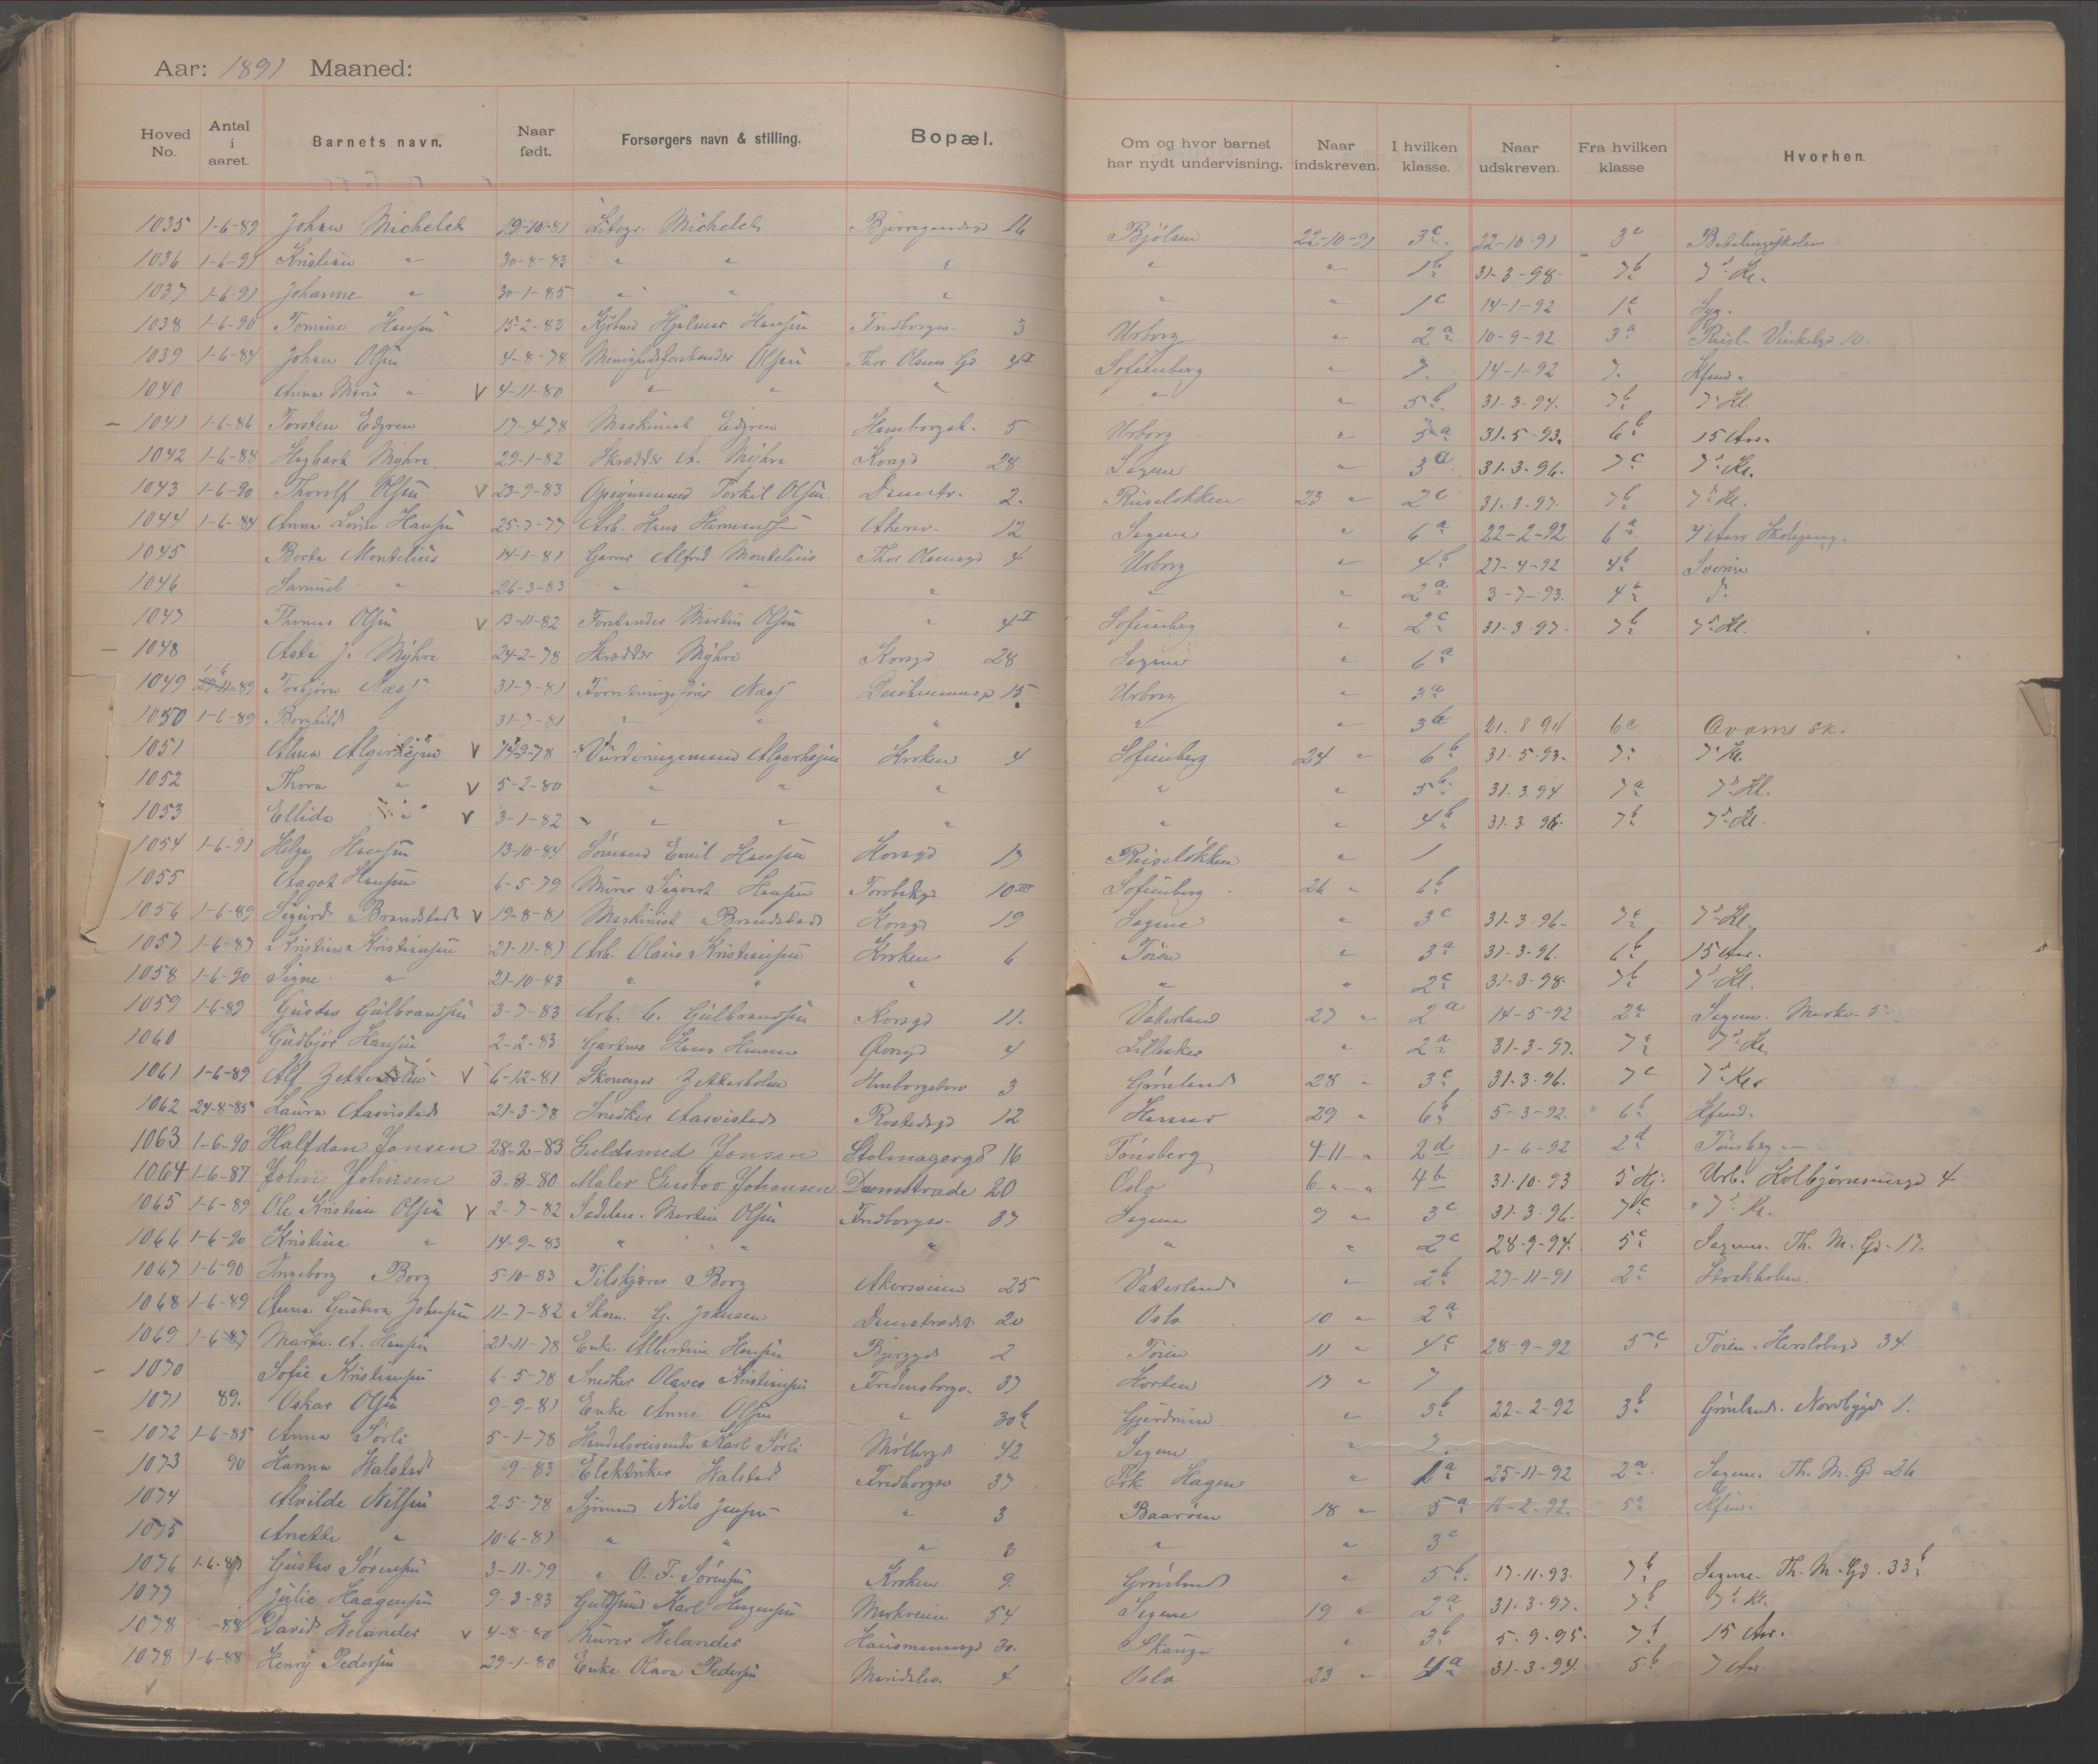 Aar: 1891 Maaned:
Hoved No. Antal i aaret. Barnets navn. Naar født. Forsørgers navn & stilling. Bopæl. Om og hvor barnet har nydt undervisning. Naar indskreven. I hvilken klasse. Naar udskreven. Fra hvilken klasse Hvorhen.
1035 1-6-89 Johan Michelet 19-10-81 Litogr. Michelet 16 Bjölsen 22-10-91 3c 22-10-91 3c Betalingsskolen
1036 1-6-91 Kristian " 30-8-83 " " " " " 1b 31-3-98 7b 7' Kl.
1037 1-6-91 Johanne " 30-1-85 " " " " " 1c 14-1-92 1c Syg.
1038 1-6-90 Tomine Hansen 15-2-83 Hjalmar Hansen Fredborgsv. 3 Urborg " 2a 10-9-92 3a Rusl. Vinkelgd 10.
1039 1-6-84 Johan Olsen 4-8-78 Menighedsforstander Olsen Thor Olsens Gd 4I Sofienberg " 7. 14-1-92 7. Kfund.
1040 Anna Marie " V 4-11-80 " " " " " 5b. 31.3-94. 7b 7' Kl.
1041 1-6-86 Torsten Edgren 17-4-78 Maskinist Edgren 5 Urborg " 5a 31.5-93. 6b 15 Aar.
1042 1-6-88 Hagbart Myhre 29-1-82 Skrædder A. Myhre Korsgd 28 Sagene " 3a 31.3-96. 7c 7' Kl.
1043 1-6-90 Thorolf Olsen V 23-9-83 Opsynsmand Torkil Olsen Damstr. 2. Ruseløkken 23 " 2c 31.3.97. 7b 7' Kl.
1044 1-6-84 Anna Lovise Hansen 25-7-77 Arb. Hans Akersv. 12 Sagene " 6a 22-2-92 6a 7 Aars Skolegang.
1045 Berta Montelius 14-1-81 Garver Alfred Montelius Thor Olsensgd 4 Urborg " 4b 27-4-92 4b Sverige
1046 Samuel " 26-3-83 " " " " " 2a 3-7-93. 4a d.
1047 Thomas Olsen V 13-11-82 Forstander Martin Olsen " 4I Sofienberg " 2c 31.3-97. 7b 7' Kl.
1048 Asta J. Myhre 24-2-78 Skrædder Myhre Korsgd 28 Sagene " 6a
1049 1-6-89 Torbjørn Næss 31-7-81 Forretningsfører Næss 15 Urborg " 3a
1050 1-6-89 Borghild 31-7-81 " " " " " 3b 21.8 94 6c Qvams sk.
1051 Alma V Kroken 4 Sofienberg 24 " 6b 31.5-93. 7. 7' Kl.
1052 Thora " V 5-2-80 " " " " " 5b. 31.3.94 7a 7' Kl.
1053 Ellida " V 3-1-82 " " " " " 4b 31.3.96. 7b 7' Kl.
1054 1-6-91 Helga Hansen 13-10-84 Sømand Emil Hansen Korsgd 17 Ruseløkken " 1
1055 Aagot Hansen 6-5-79 Murer Sigvart Hansen Torvbakkgd 10III Sofienberg 26 " 6b
1056 1-6-89 Sigurd Brandstad V 19-8-81 Maskinist Brandstad Korsgd 19 Sagene " 3c 31-3-96- 7a 7' Kl.
1057 1-6-87 Kristine Kristiansen 21-11-81 Arb. Olaus Kristiansen Kroken 6 Töien " 3a 31-3-96. 6b 15 Aar.
1058 1-6-90 Signe " 21-10-83 " " " " " 2c 31-3-98. 7b 7' Kl.
1059 1-6-89 Gustav Gulbrandsen 3-7-83 Arb. C. Gulbrandsen Korsgd 11. Vaterland 27 " 2a 14-5-92 2a Sagene. Markv. 5.
1060 Gudbjør Hansen 2-2-83 Gartner Hans Hansen 4 Lilleaker " 2a 31-3-97. 7a 7' Kl.
1061 1-6-89 Alf Zetterholm V 6-12-81 Skomager Zetterholm 3 Grønland 28 " 3c 31.3.96. 7c 7' Kl.
1062 24-8-85 Laura Aasvistad 21-3-78 Snedker Aasvistad Rostedsgd 12 Hamar 29 " 6b 5-3-92. 6b Kfund.
1063 1-6-90 Halfdan Jansen 28-2-83 Guldsmed Jansen Stolmagergd 16 Tönsberg 4-11-" 2d 1-6-92 2d Tönsberg
1064 1-6-87 John Johnsen 3-8-80 Maler Gustav Johansen Damstræde 20 Oslo 6-"-" 4b 31.10.93 5 Hj. Urb. Kolbjørnsensgd 4
1065 1-6-89 Ole Kristian Olsen V 2-7-82 Martin Olsen Fredborgsv. 37 Sagene 9 " 3c 31.3.96. 7c 7' Kl.
1066 1-6-90 Kristine " 14-9-83 " " " " " 2c 28.9-94. 5c Sagene. Th. M. Gd. 17.
1067 1-6-90 Ingeborg Borg 5-10-83 Tilskjærer Borg Akersveien 25 Vaterland " 2b 27-11-91 2c Stockholm.
1068 1-6-89 Anna Gustava Johnsen 11-7-82 Skom. G. Johnsen Damstrædet 20 Oslo 10 " 2a
1069 1-6-87 Marta A. Hansen 21-11-78 Enke Albertine Hansen 2 Töien 11 " 4c 28-9-92 5c Töien. Herslebsgd 34
1070 Sofie Kristiansen 6-5-78 Snedker Olaves Kristiansen Fredensborgv. 37 Horten 17 " 7
1071 89. Oskar Olsen 9-9-81 Enke Anne Olsen " 30b " 3b 22-2-92 3b Grönland. Nordbygd 1.
1072 1-6-85 Anna Sørli 5-1-78 Handelsreisende Karl Sørli Møllergd 42 Sagene " 7.
1073 90 Hanna Walstad -9-83 Elektriker Walstad Fredborgsv 37 Frk Hagen " 1a 25-11-92 2a. Sagene. Th. M. Gd 26
1074 Alvilde Nilsen 2-5-78 Sjömand Nils Jensen " 3 18 " 5a 16-2-92. 5a Kfund.
1075 Anette " 10-6-81 " " " 3 " " 3c
1076 1-6-87 Gustav Sørensen 3-11-79 " O. F. Sørensen Kroken 9. Grønland " 5b. 17-11.93. 7b Sagene. Th. M. Gd. 33b
1077 Julie Haagensen 9-3-83 Karl Haagensen Markveien 54 Sagene 19 " 2a 31.3.97. 7b 7' Kl.
1078 -88 David Welander V 4-8-80 Murer Welander Hausmannsgd 30. " 3b 5.9-95. 7b 15 Aar.
1078 1-6-88 Henry Pedersen 29-1-80 Enke Olava Pedersen Maridalsv. 4 Oslo 23 " 4a 31-3-94. 5b 7 Aar.
V